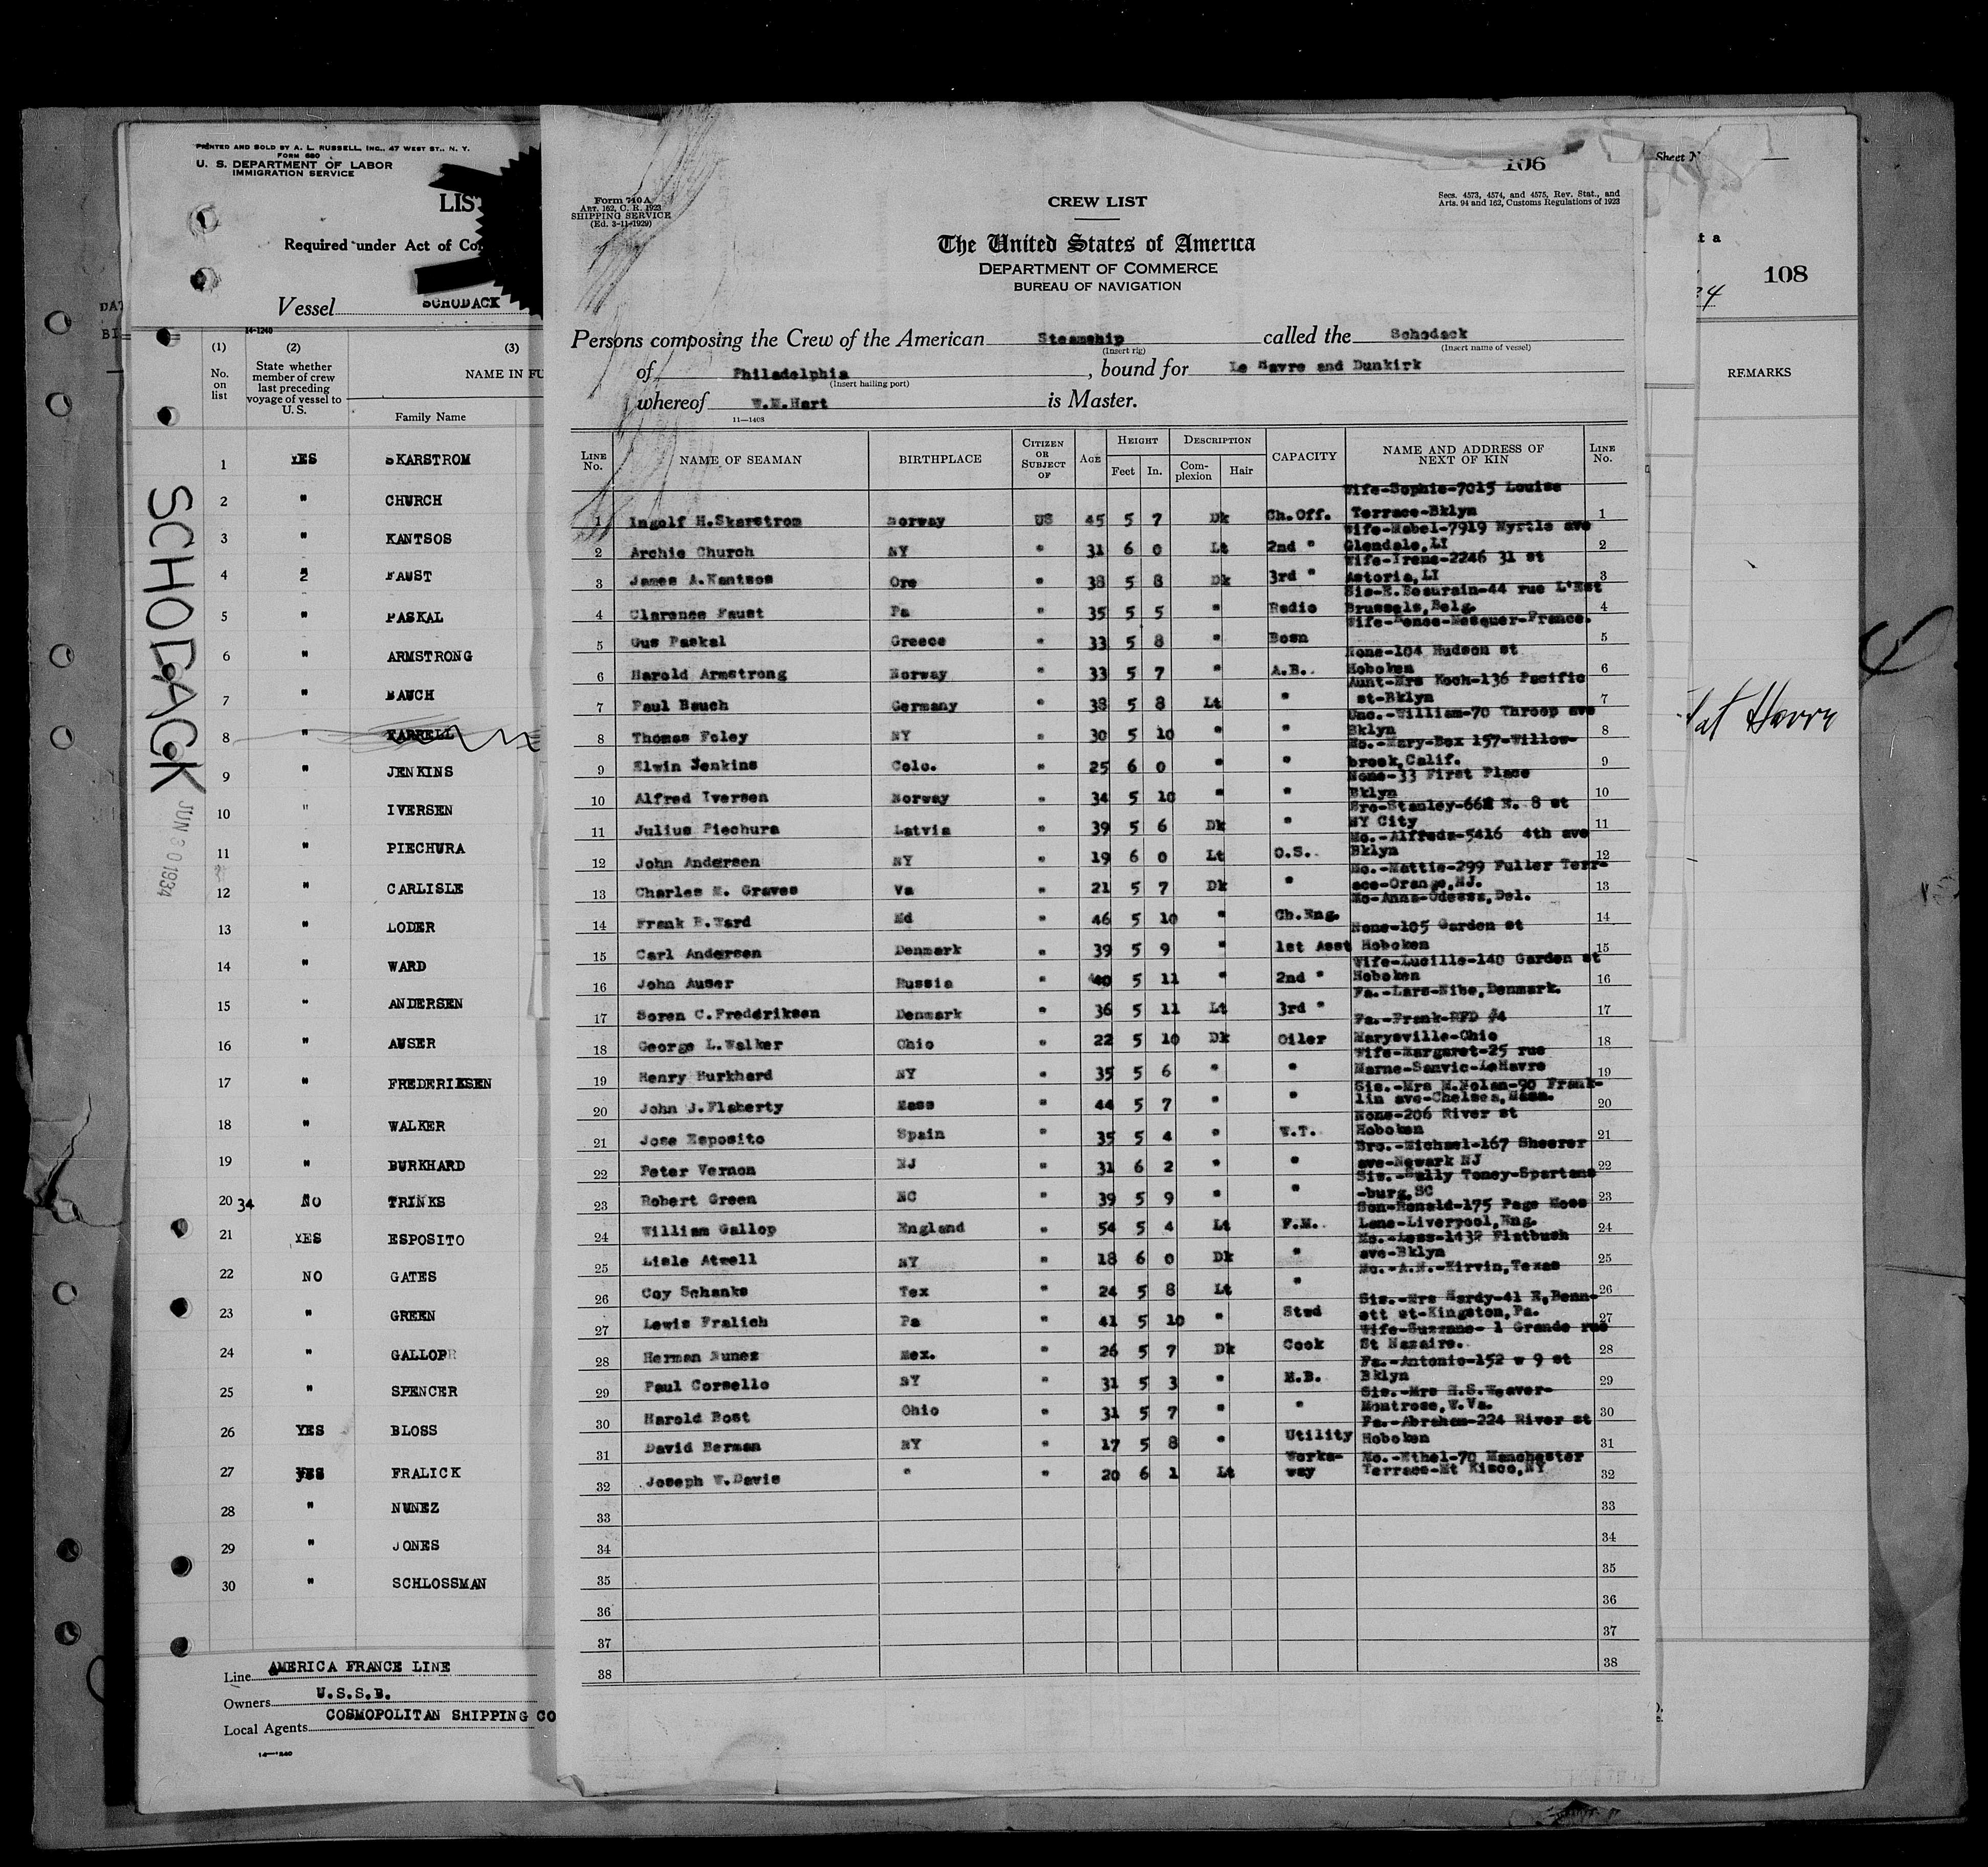 PRINTED AND SOLD BY A. L. RUSSELL, INC., 47 WEST ST., N. Y.
FORM 680
U. S. DEPARTMENT OF LABOR
IMMIGRATION SERVICE
LIS
Required under Act of Co
Vessel SCHODACK
14-1240
(1) (2) (3)
No. on list
State whether member of crew last preceding voyage of vessel to U. S.
NAME IN FU
Family Name
1 YES SKARSTROM
2 " CHURCH
3 " KANTSOS
4 " FAUST
5 " PASKAL
6 " ARMSTRONG
7 " BAUCH
8 " FARRELL
9 " JENKINS
10 " IVERSEN
11 " PIECHURA
12 " CARLISLE
13 " LODER
14 " WARD
15 " ANDERSEN
16 " AUSER
17 " FREDERIKSEN
18 " WALKER
19 " BURKHARD
20 34 NO TRINKS
21 YES ESPOSITO
22 NO GATES
23 " GREEN
24 " GALLOP
25 " SPENCER
26 YES BLOSS
27 YES FRALICK
28 " NUNEZ
29 " JONES
30 " SCHLOSSMAN
SCHODACK
JUN 30 1934
Line AMERICA FRANCE LINE
Owners U.S.S.B.
Local Agents COSMOPOLITAN SHIPPING CO
14-1240
106
Form 710 A
ART. 162, C. R. 1923
SHIPPING SERVICE
(Ed. 3-11-1929)
CREW LIST
Secs. 4573, 4574, and 4575, Rev. Stat., and
Arts. 94 and 162, Customs Regulations of 1923
The United States of America
DEPARTMENT OF COMMERCE
BUREAU OF NAVIGATION
Persons composing the Crew of the American Steamship called the Schodack
(Insert rig) (Insert name of vessel)
of Philadelphia, bound for Le Havre and Dunkirk
(Insert hailing port)
whereof W.M.Hart is Master.
11-1408
LINE No. NAME OF SEAMAN BIRTHPLACE CITIZEN OR SUBJECT OF AGE HEIGHT Feet In. DESCRIPTION Complexion Hair CAPACITY NAME AND ADDRESS OF NEXT OF KIN LINE No.
1 Ingolf H.Skarstrom Norway US 45 5 7 Dk Ch.Off. Wife-Sophie-7015 Louise Terrace-Bklyn 1
2 Archie Church NY " 31 6 0 Lt 2nd " Wife-Mabel-7919 Myrtle ave Glendale,LI 2
3 James A.Kantsos Ore " 38 5 8 Dk 3rd " Wife-Irene-2246 31 st Astoria,LI 3
4 Clarence Faust Pa " 35 5 5 " Radio Sis-E.Beaurain-44 rue L'Est Brussels,Belg. 4
5 Gus Paskal Greece " 33 5 8 " Bosn Wife-Renee-Mesquer-France. 5
6 Harold Armstrong Norway " 33 5 7 " A.B. None-104 Hudson st Hoboken 6
7 Paul Bauch Germany " 38 5 8 Lt " Aunt-Mrs Koch-136 Pacific st-Bklyn 7
8 Thomas Foley NY " 30 5 10 " " Unc.-William-70 Throop ave Bklyn 8
9 Elwin Jenkins Colo. " 25 6 0 " " Mo.-Mary-Box 157-Willowbrook,Calif. 9
10 Alfred Iversen Norway " 34 5 10 " " None-33 First Place Bklyn 10
11 Julius Piechura Latvia " 39 5 6 Dk " Bro-Stanley-662 E. 8 st NY City 11
12 John Andersen NY " 19 6 0 Lt O.S. Mo.-Alfreda-5416 4th ave Bklyn 12
13 Charles M. Graves Va " 21 5 7 Dk " Mo.-Mattie-299 Fuller Terrace-Orange,NJ. 13
14 Frank B.Ward Md " 46 5 10 " Ch.Eng. Mo-Anna-Odessa,Del. 14
15 Carl Andersen Denmark " 39 5 9 " 1st Asst None-105 Garden st Hoboken 15
16 John Auser Russia " 40 5 11 " 2nd " Wife-Lucille-140 Garden st Hoboken 16
17 Soren C.Frederiksen Denmark " 36 5 11 Lt 3rd " Fa.-Lars-Nibe,Denmark. 17
18 George L.Walker Ohio " 22 5 10 Dk Oiler Fa.-Frank-RFD #4 Marysville-Ohio 18
19 Henry Burkhard NY " 35 5 6 " " Wife-Margaret-25 rue Marne-Sanvic-LeHavre 19
20 John J.Flaherty Mass " 44 5 7 " " Sis.-Mrs M.Nolan-90 Franklin ave-Chelsea,Mass. 20
21 Jose Esposito Spain " 35 5 4 " W.T. None-206 River st Hoboken 21
22 Peter Vernon NJ " 31 6 2 " " Bro.-Michael-167 Sheerer ave-Newark NJ 22
23 Robert Green NC " 39 5 9 " " Sis.-Sally Toney-Spartans-burg,SC 23
24 William Gallop England " 54 5 4 Lt F.M. Son-Ronald-175 Page Moss Lane-Liverpool,Eng. 24
25 Lisle Atwell NY " 18 6 0 Dk " Mo.-Less-1432 Flatbush ave-Bklyn 25
26 Coy Schanks Tex " 24 5 8 Lt " Mo.-A.M.-Kirvin,Texas 26
27 Lewis Fralich Pa " 41 5 10 " Stwd Sis.-Mrs Hardy-41 R,Bennett st-Kingston,Pa. 27
28 Herman Nunez Mex. " 26 5 7 Dk Cook Wife-Suzzane- 1 Grande rue St Nazaire. 28
29 Paul Corsello NY " 31 5 3 " M.B. Fa.-Antonio-152 w 9 st Bklyn 29
30 Harold Bost Ohio " 31 5 7 " " Sis.-Mrs H.S.Weaver-Montrose,W.Va. 30
31 David Berman NY " 17 5 8 " Utility Fa.-Abraham-224 River st Hoboken 31
32 Joseph W.Davis " " 20 6 1 Lt Workaway Mo.-Ethel-70 Manchester Terrace-Mt Kisco,NY 32
33 33
34 34
35 35
36 36
37 37
38 38
Sheet N
t a
108
34
REMARKS
at Havre